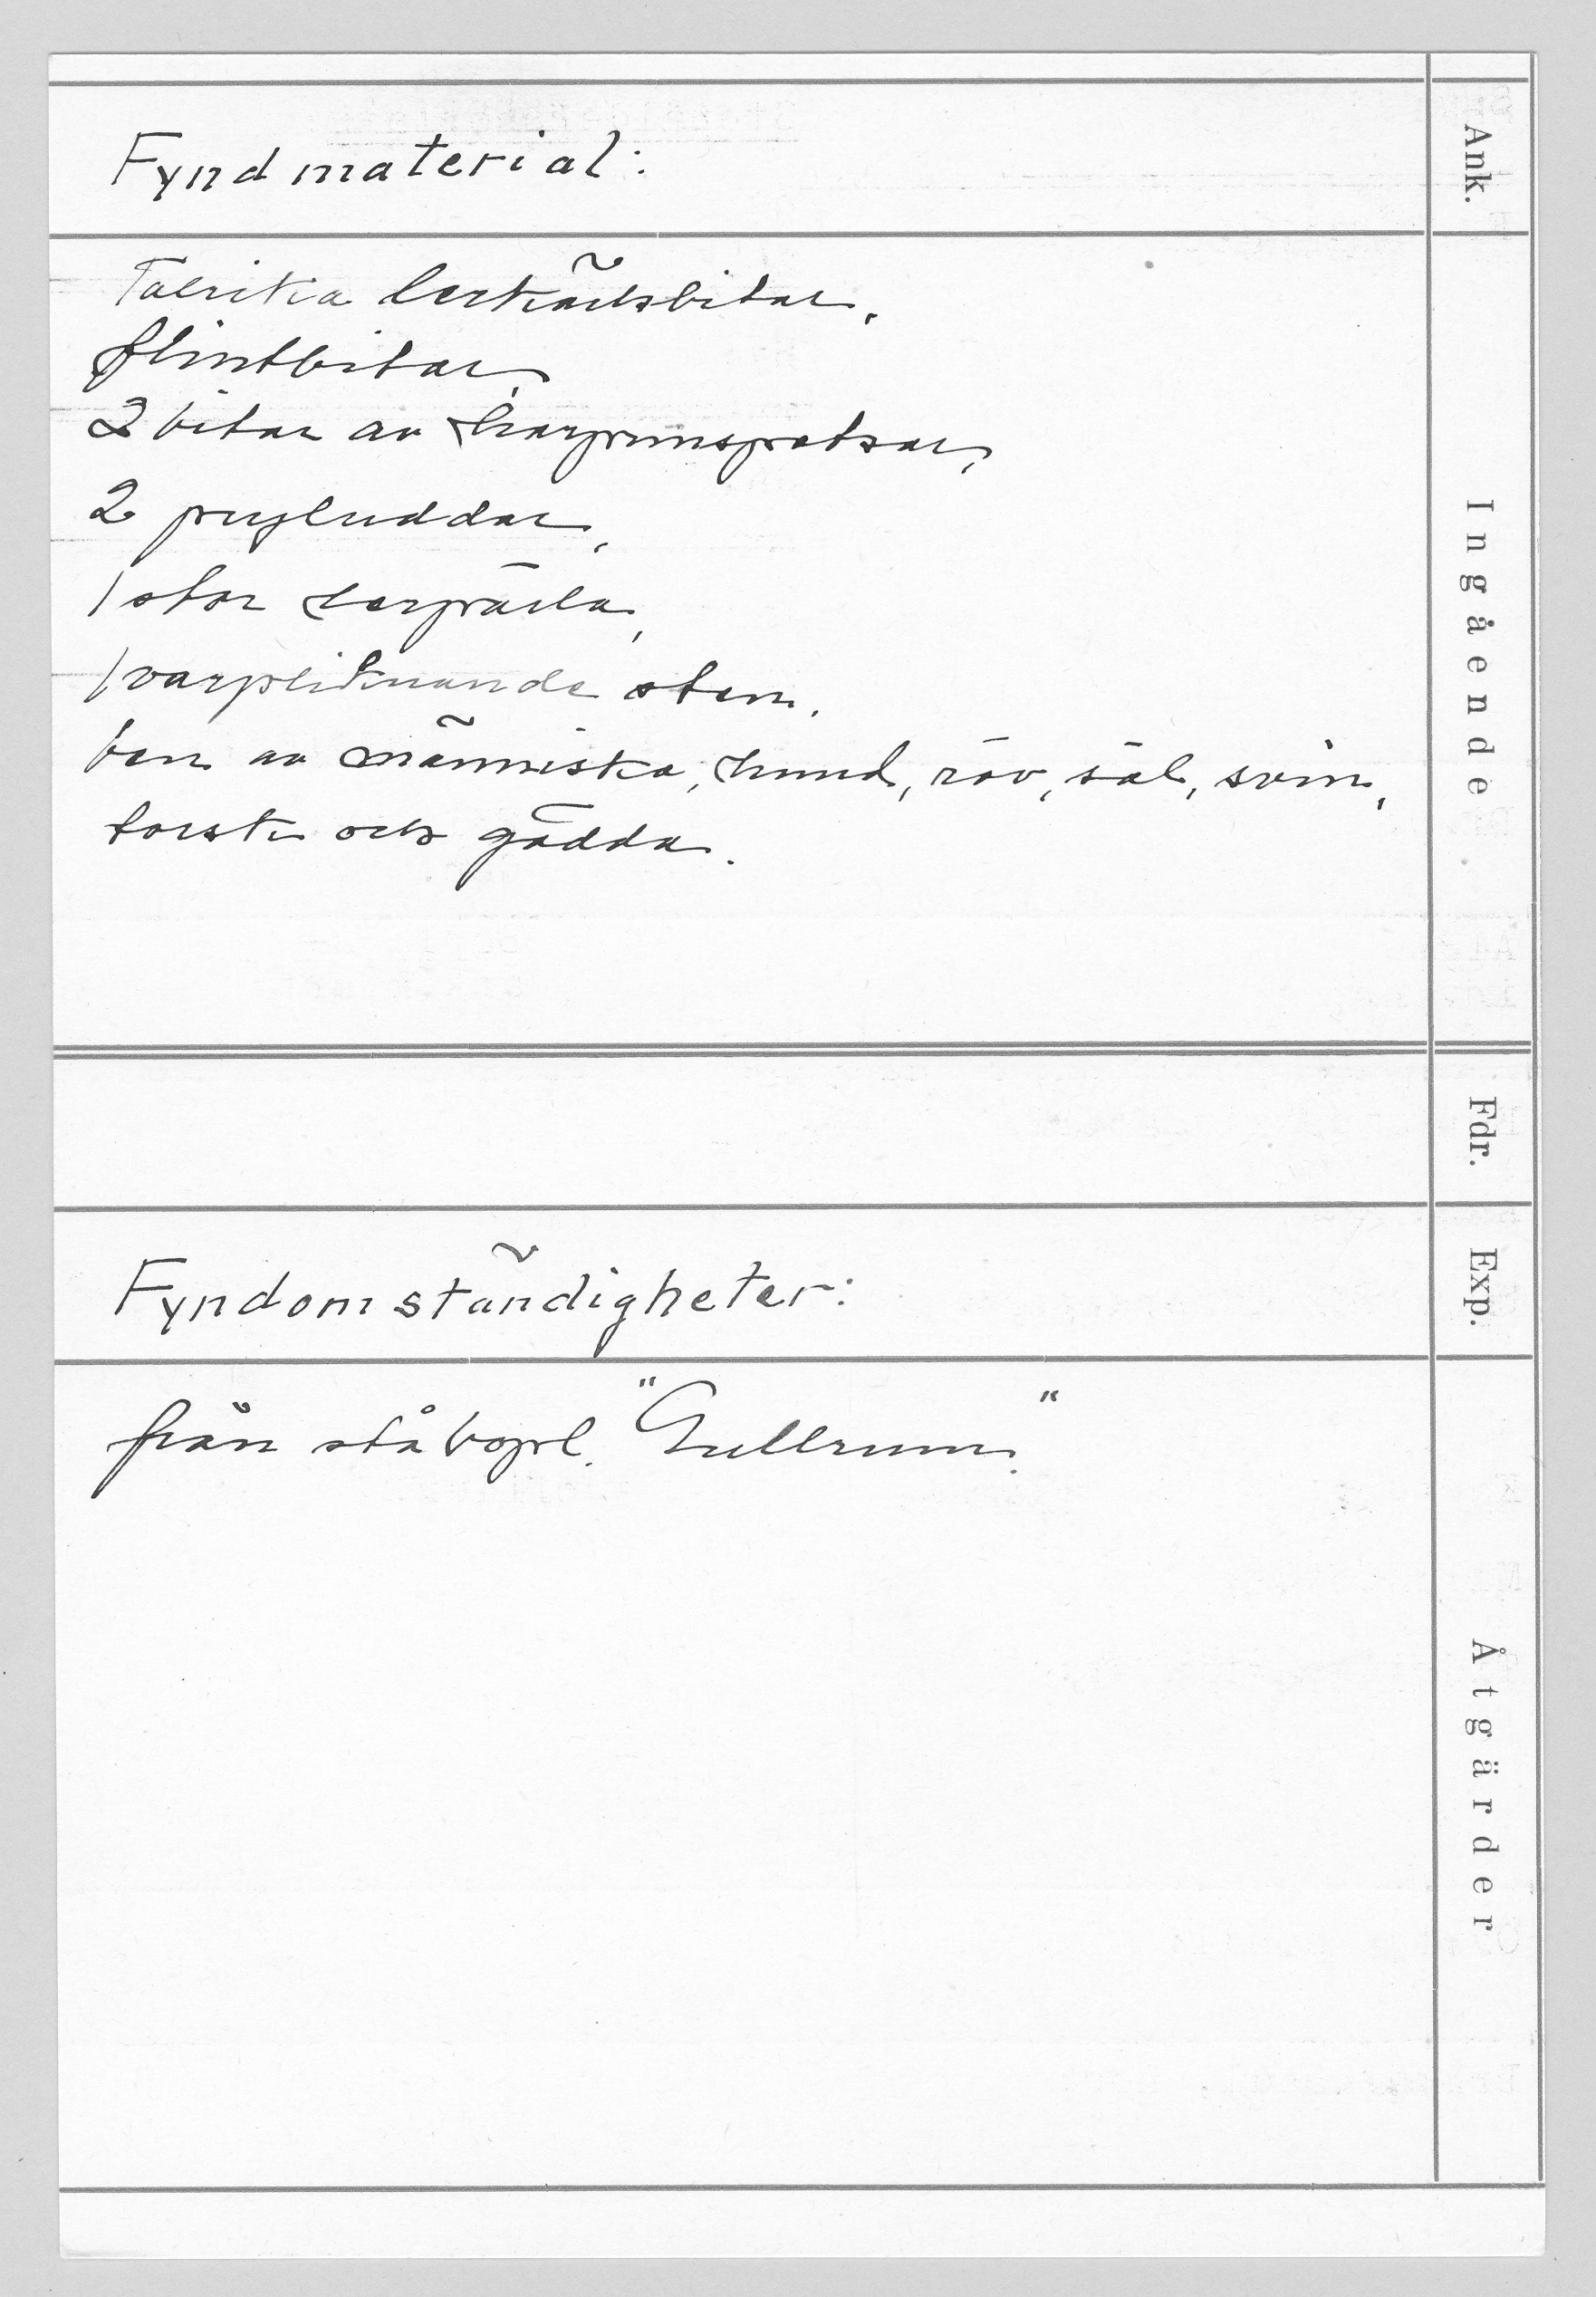 Fyndmaterial:
Talrika lerkärlsbitar,
flintbitar,
2 bitar av harpunspetsar,
2 pryluddar,
1 stor lerpärla,
1 varpliknande sten.
ben av människa, hund, räv, säl, svin,
torsk och gädda.
Fyndomständigheter:
från stå bopl. "Gullrum."
Ank.
Ingående
Fdr.
Exp.
Åtgärder